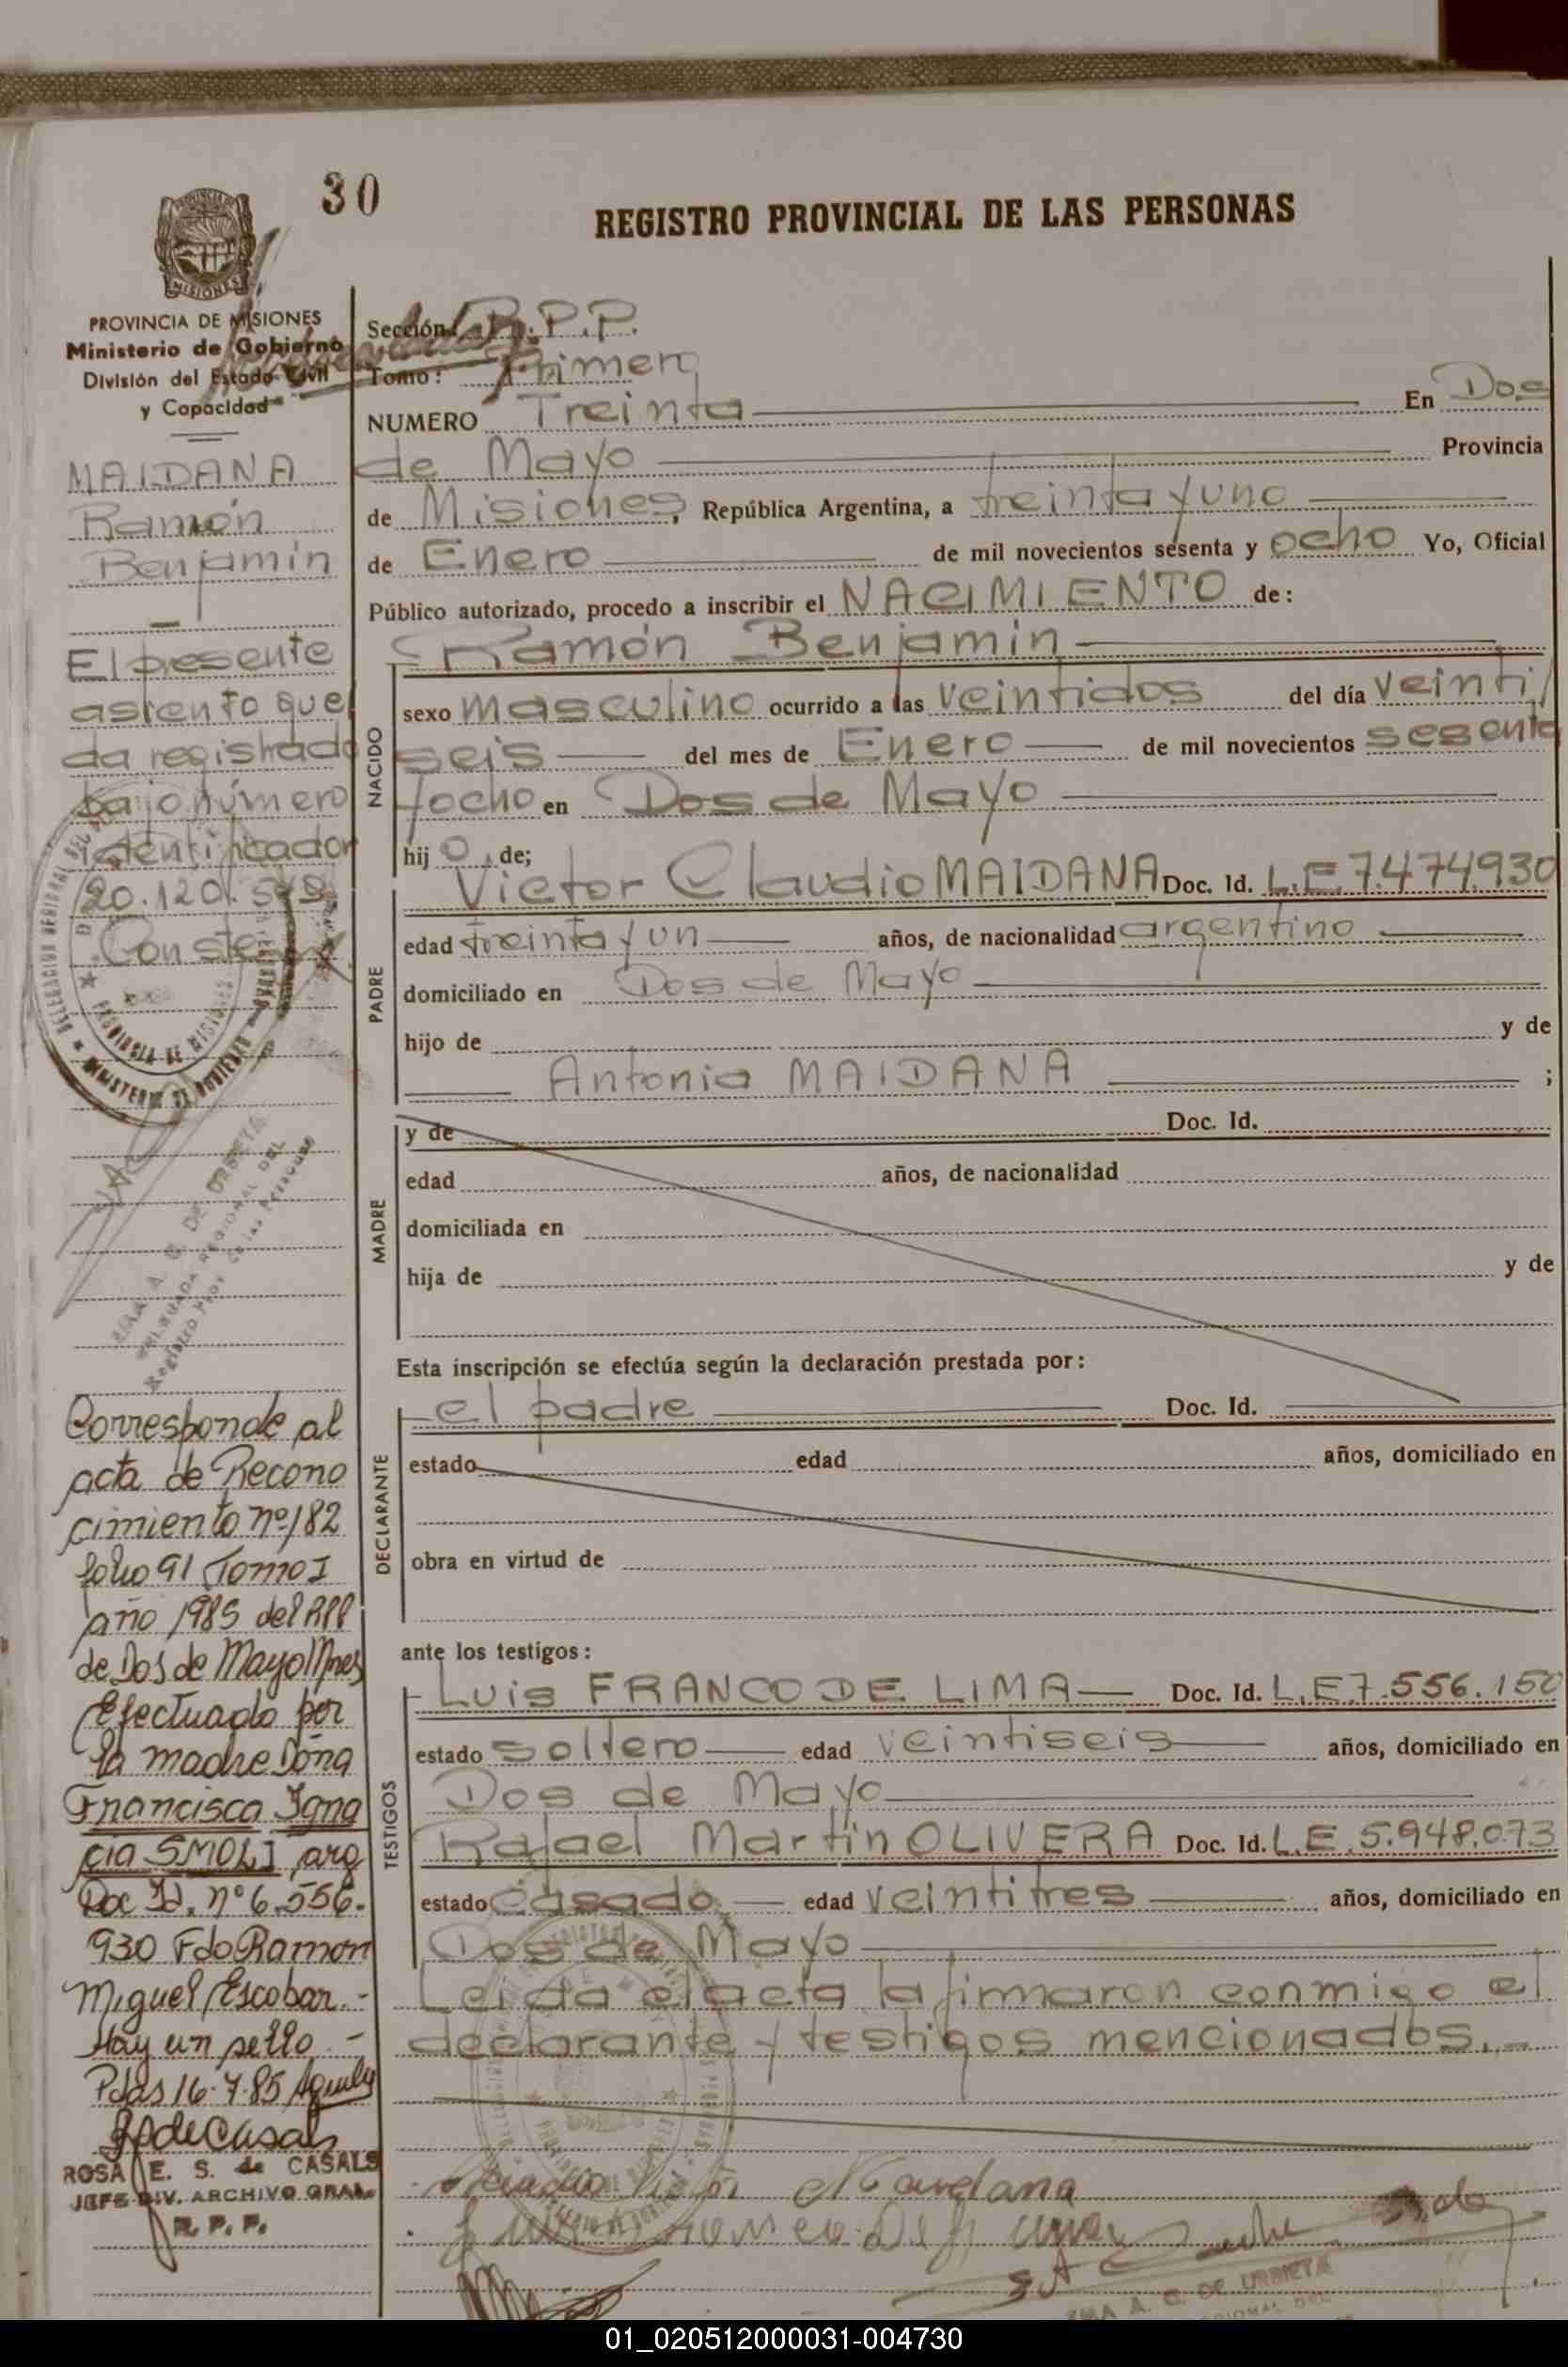 30
REGISTRO PROVINCIAL DE LAS PERSONAS
MISIONES
PROVINCIA DE MISIONES
Ministerio de Gobierno
División del Estado Civil
y Capacidad
MAIDANA
Ramón
Benjamín
El presente
asiento que
da registrado
bajo número
identificador
Conste
Corresponde al
acta de Recono
cimiento nº 182
folio 91 Tomo I
año 1985 del RPP
de Dos de Mayo Mnes
Efectuado por
la madre Doña
Francisca Igna
cia SMOLI arg
Doc Id. nº 6.556.
930 Fdo Ramon
Miguel Escobar.-
Hay un sello.-
Pdas 16-7-85
ROSA E. S. de CASALS
JEFE DIV. ARCHIVO GRAL.
R. P. P.
Sección: R.P.P.
Tomo: Primero
NUMERO Treinta En Dos
de Mayo Provincia
de Misiones, República Argentina, a treinta y uno
de Enero de mil novecientos sesenta y ocho Yo, Oficial
Público autorizado, procedo a inscribir el NACIMIENTO de:
Ramón Benjamín
NACIDO
sexo masculino ocurrido a las veintidos del día veinti
seis del mes de Enero de mil novecientos sesenta
y ocho en Dos de Mayo
hij o de;
PADRE
Victor Claudio MAIDANA Doc. Id. L.E. 7.474.930
edad treinta y un años, de nacionalidad argentino
domiciliado en Dos de Mayo
hijo de y de
Antonia MAIDANA ;
MADRE
y de Doc. Id.
edad años, de nacionalidad
domiciliada en
hija de y de
Esta inscripción se efectúa según la declaración prestada por:
DECLARANTE
el padre Doc. Id.
estado edad años, domiciliado en
obra en virtud de
ante los testigos:
TESTIGOS
Luis FRANCO DE LIMA Doc. Id. L.E. 7.556.150
estado soltero edad veintiseis años, domiciliado en
Dos de Mayo
Rafael Martín OLIVERA Doc. Id. L.E. 5.948.073
estado casado edad veintitres años, domiciliado en
Dos de Mayo
Leida el acta la firmaron conmigo el
declarante y testigos mencionados.-
01_020512000031-004730